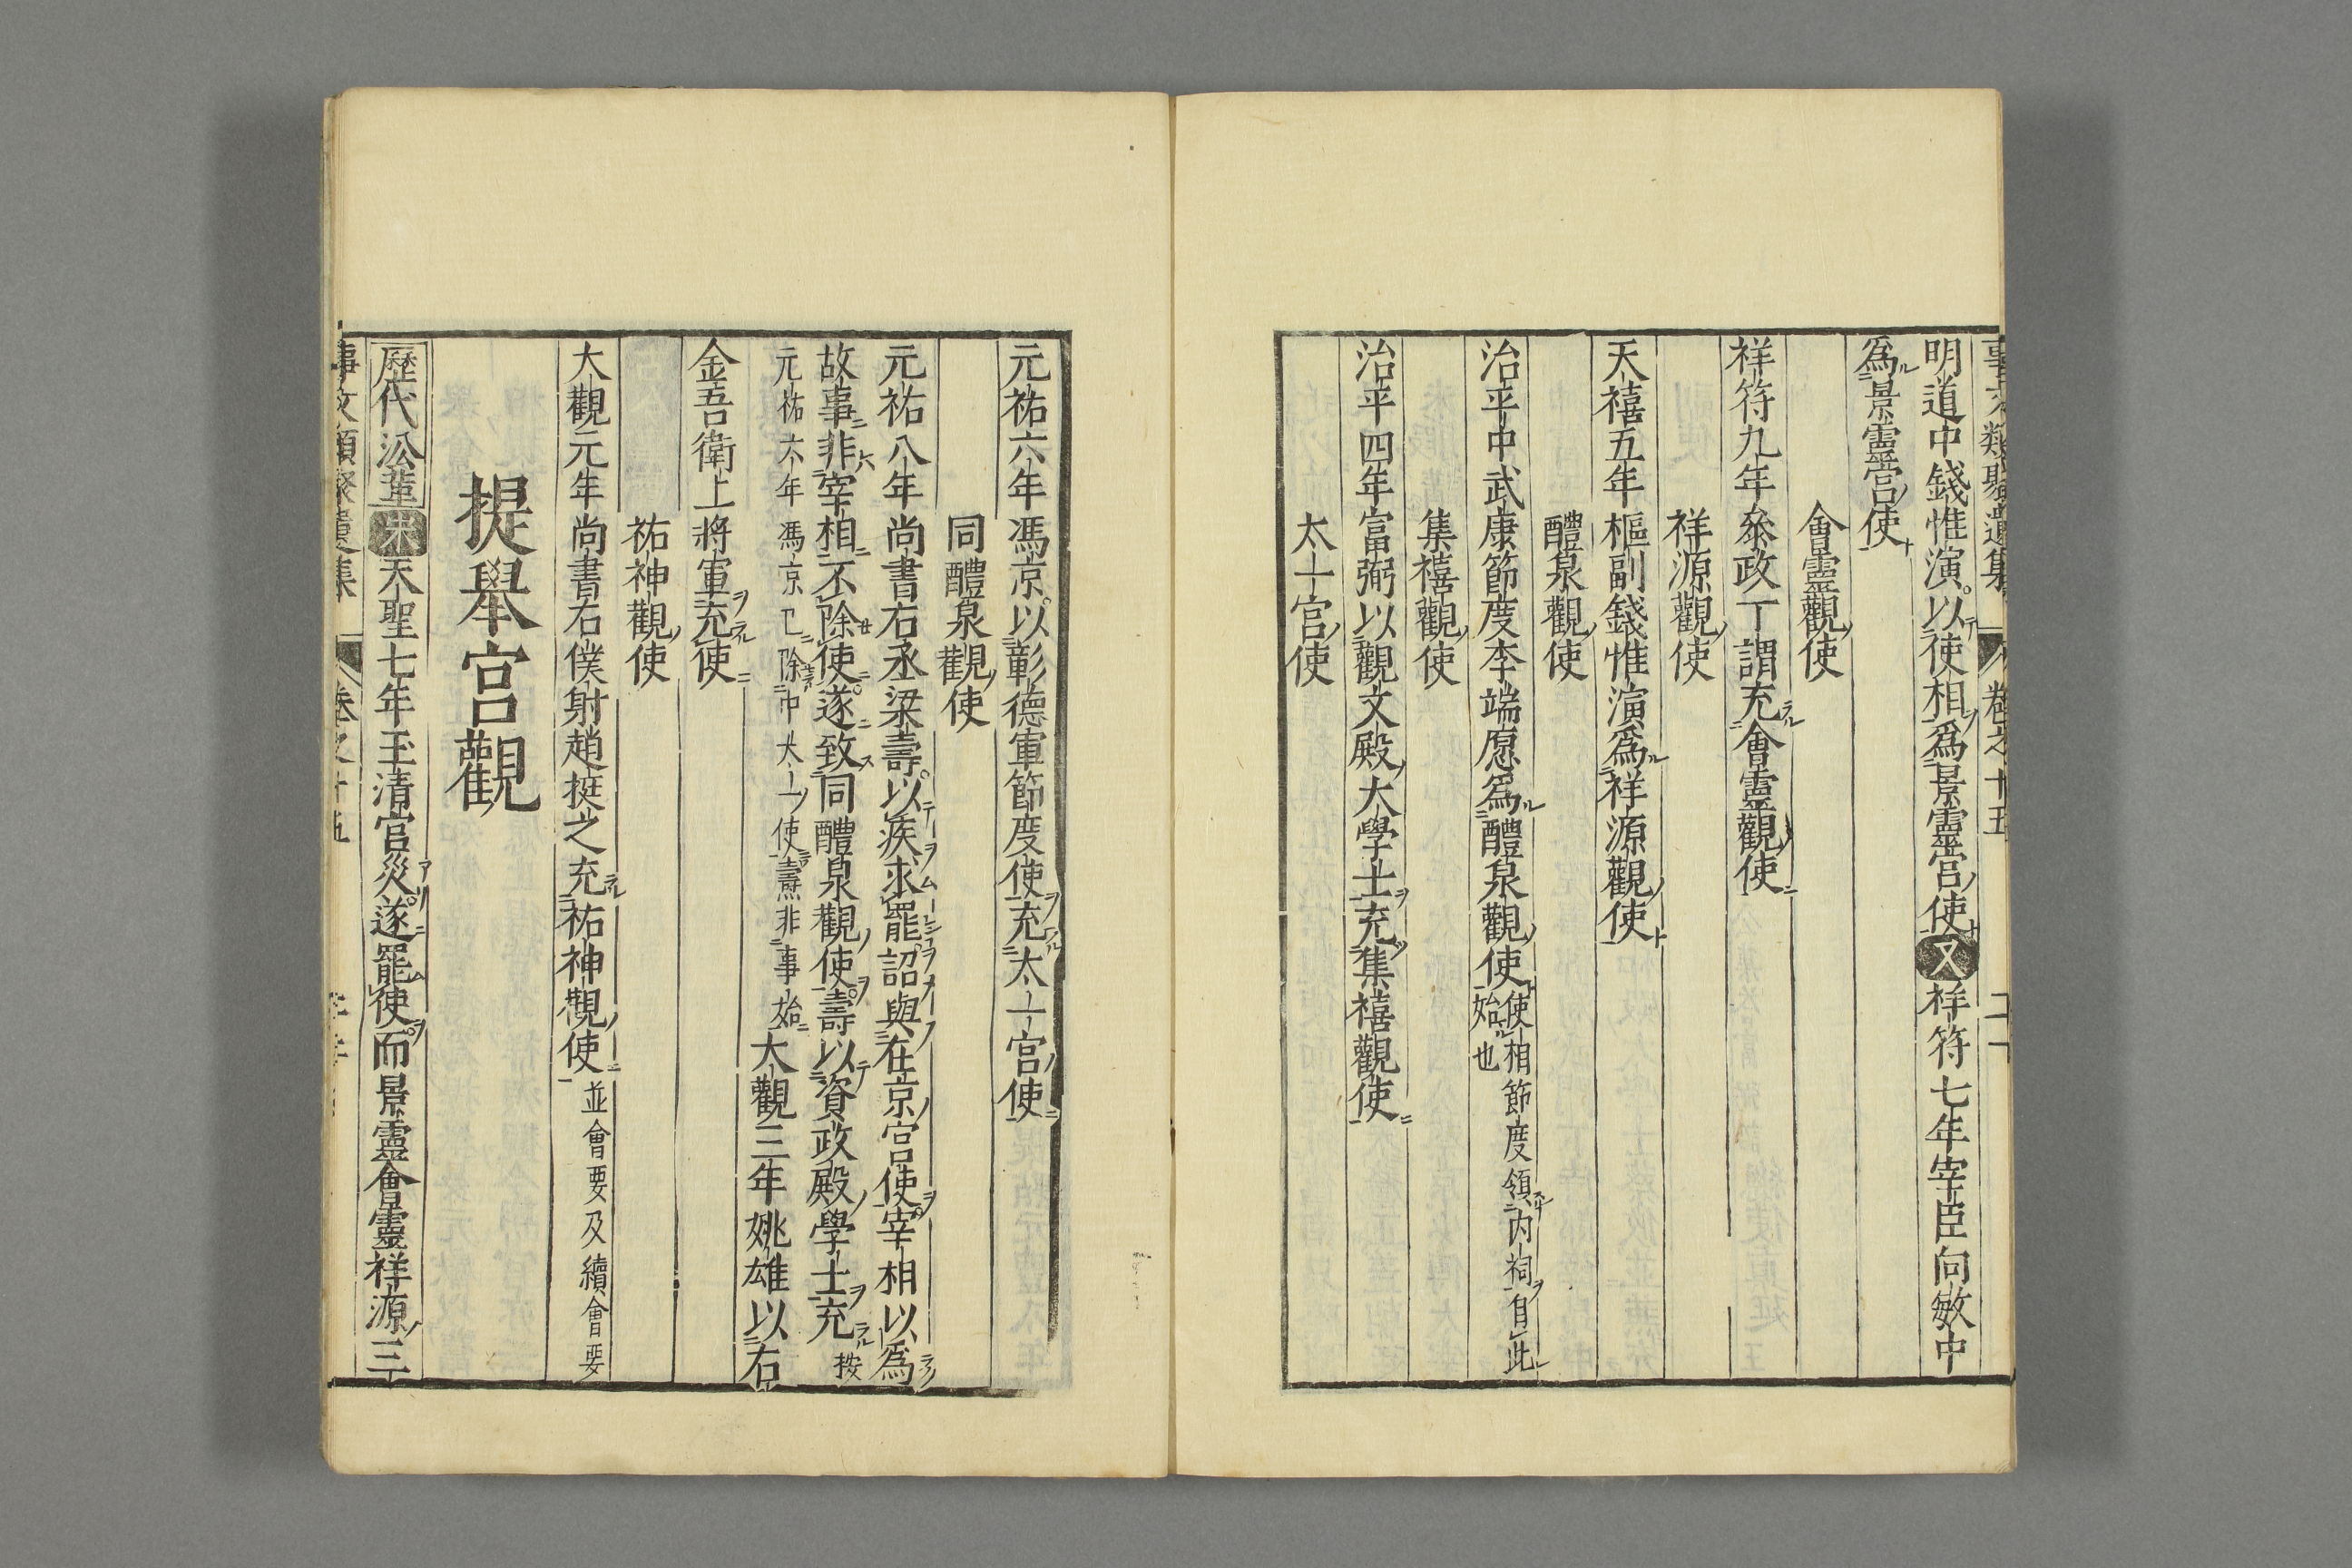 事文類聚遺集 卷之十五 二十
明道中錢惟演以使相爲景靈宮使又祥符七年宰臣向敏中
爲景靈宮使
會靈觀使
祥符九年叅政丁謂充會靈觀使
祥源觀使
天禧五年樞副錢惟演爲祥源觀使
醴泉觀使
治平中武康節度李端愿爲醴泉觀使使相節度領内祠自此
始也
集禧觀使
治平四年富弼以觀文殿大學士充集禧觀使
太一宮使
元祐六年馮京以彰德軍節度使充太一宮使
同醴泉觀使
元祐八年尚書右丞梁壽以疾求罷詔與在京宮使宰相以爲
故事非宰相不除使遂致同醴泉觀使壽以資政殿學士充按
元祐六年馮京已除中太一使壽非事始大觀三年姚雄以右
金吾衛上將軍充使
祐神觀使
大觀元年尚書右僕射趙挺之充祐神觀使並會要及續會要
提舉宮觀
歷代沿革宋天聖七年玉清宮災遂罷使而景靈會靈祥源三
事文類聚遺集 卷之十五